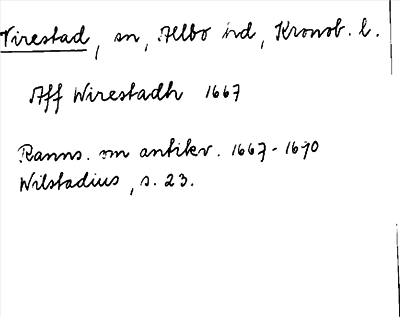 Virestad, sn, Allbo hd, Kronob. l.
Aff Wirestadh 1667
Ranns. om antikv. 1667-1690
Wilstadius, s. 23.